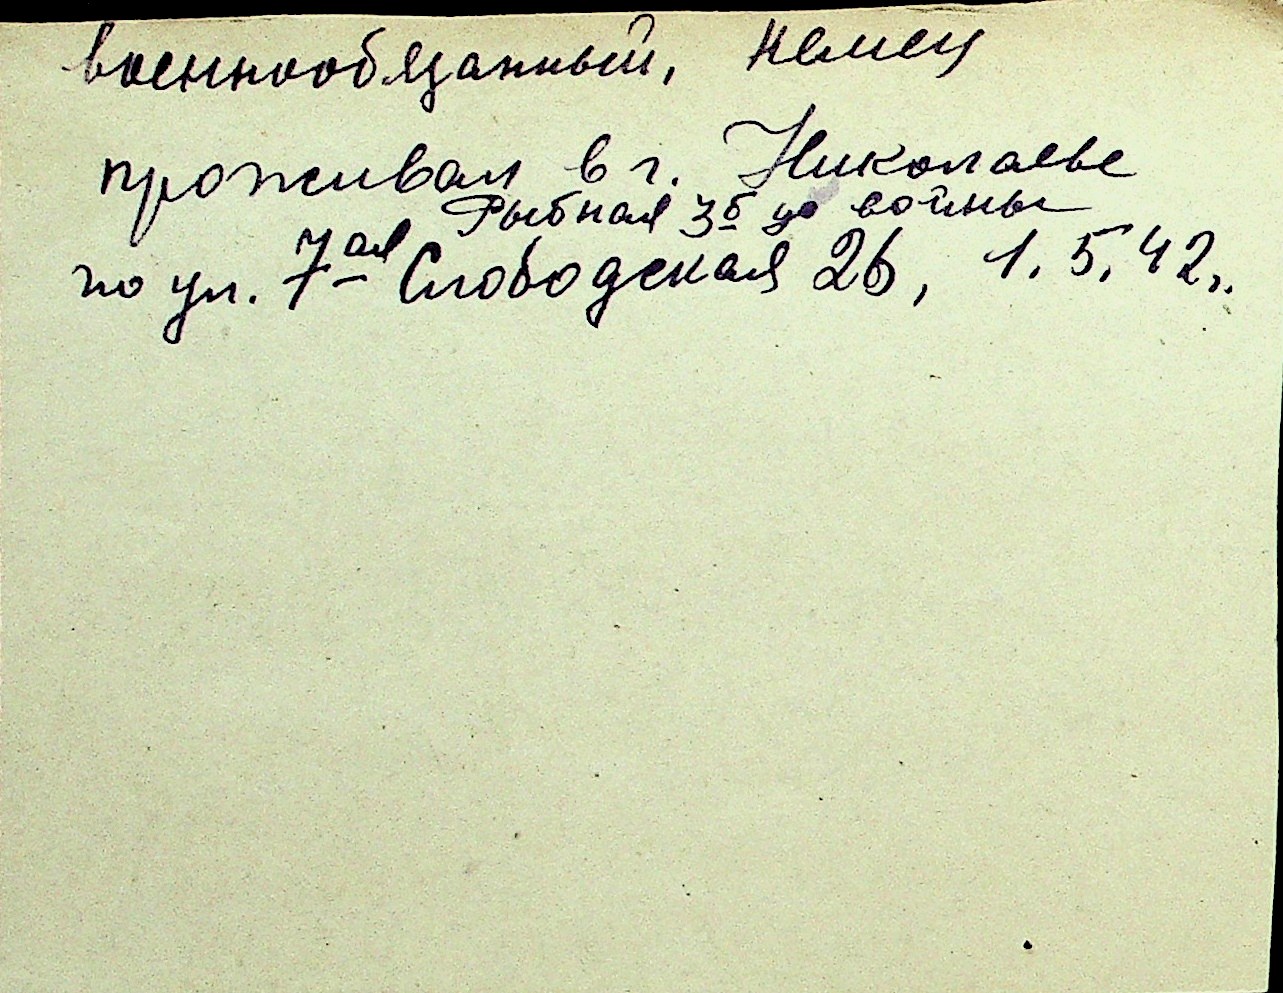 военнообязанный, немец
проживал в г. Николаеве
Рыбная 3б до войны
по ул. 7ая Слободская 26, 1.5.42г.